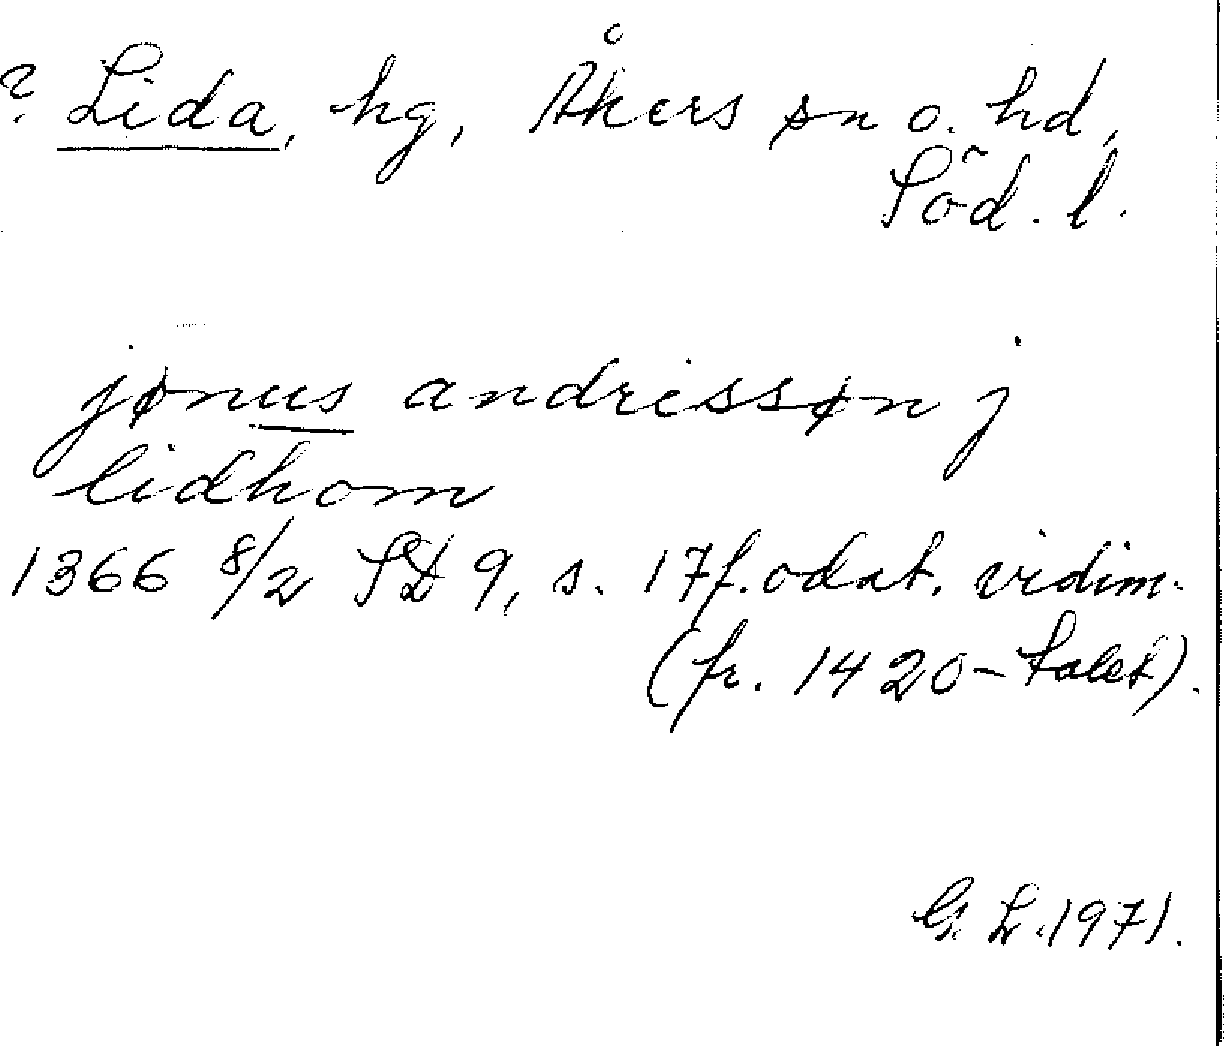 ? Lida, hg, Åkers sn o. hd,
Söd. l.
jønus andrissøn j
lidhom
1366 8/2 SD 9, s. 17f. odat. vidim.
(fr. 1420-talet).
G. L. 1971.